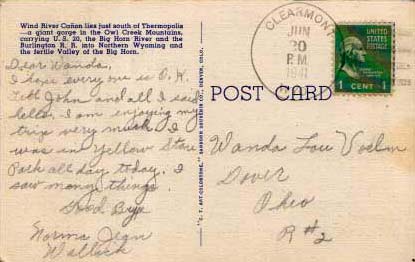 Wind River Cañon lies just south of Thermopolis
—a giant gorge in the Owl Creek Mountains,
carrying U.S. 20, the Big Horn River and the
Burlington R. R. into Northern Wyoming and
the fertile Valley of the Big Horn.
Dear Wanda,
I hope every one is O.K.
Tell John and all I said
hello. I am enjoying my
trip very much. I
was in Yellow Stone
Park all day today. I
saw many things.
Good Bye
Norma Jean
Wallick
"C. T. ART-COLORTONE" SANBORN SOUVENIR CO., DENVER, COLO.
POST CARD
CLEARMONT
JUN
20
P.M.
1941
UNITED STATES
POSTAGE
1 CENT 1
Wanda Lou
Dover
Ohio
R #2